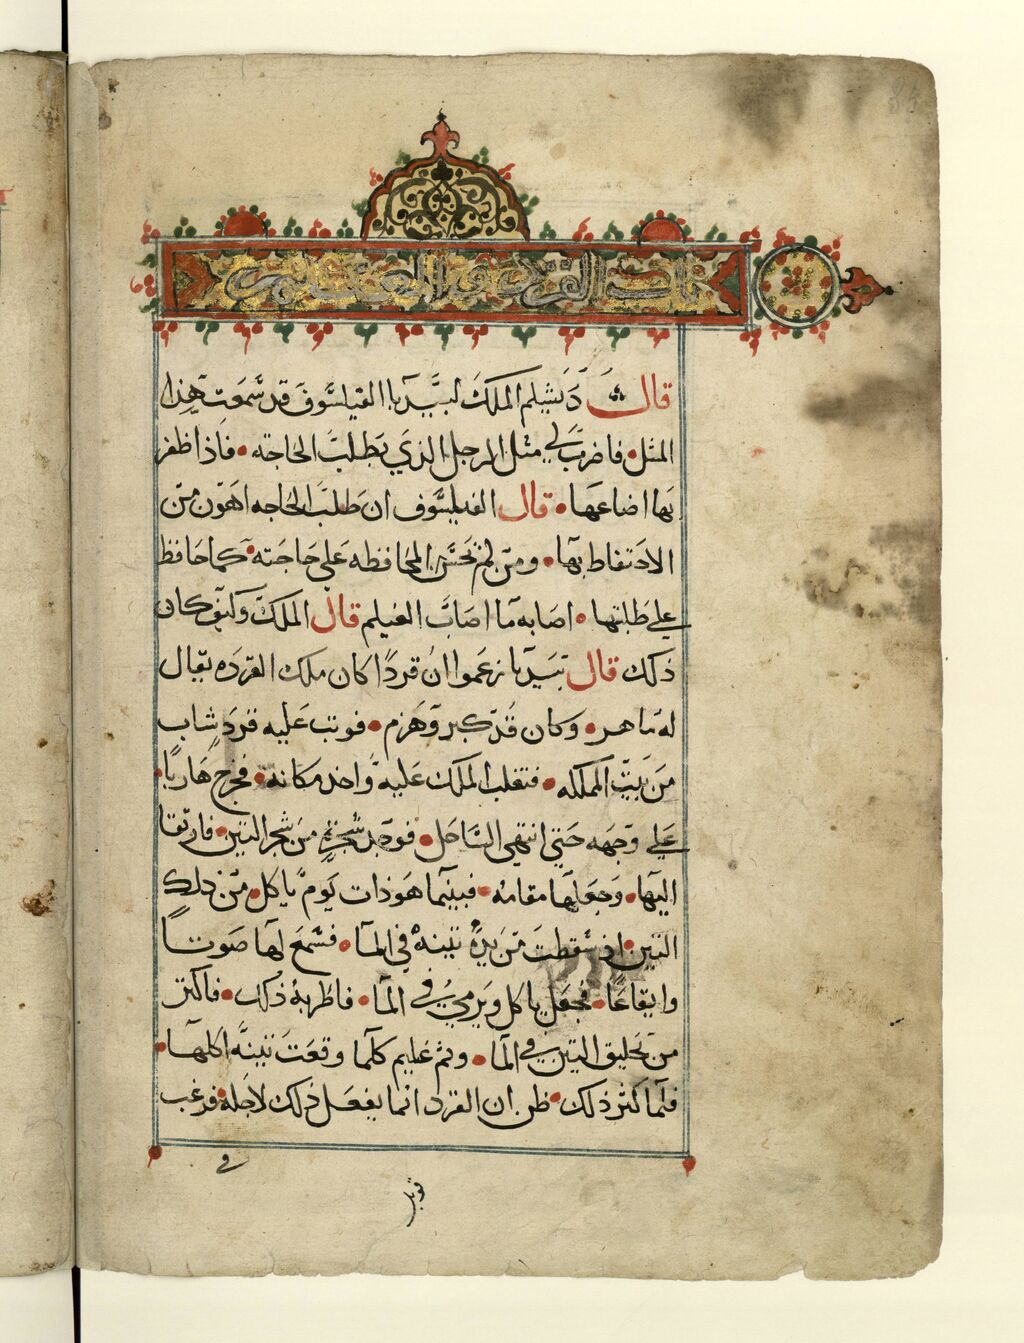 باب القرد و
قال دبشليم الملك لبيدبا الفيلسوف قد سمعت هذا
المثل فاضرب لي مثل الرجل الذي يطلب الحاجه فاذا ظفر
بها اضاعها قال الفيلسوف ان طلب الحاجه اهون من
الاحتفاظ بها ومن لم يحسن المحافظه على حاجته كما حافظ
على طلبتها اصابه ما اصاب الغيلم قال الملك وكيف كان
ذلك قال بيدبا زعموا ان قردا كان ملك القرده يقال
له ماهر وكان قد كبر وهرم فوثب عليه قرد شاب
من بيت المملكه فتغلب الملك عليه واخد مكانه فخرج هاربا
على وجهه حتى انتهى الساحل فوجد شجرة من شجر التين فارتقا
اليها وجعلها مقامه فبينما هو ذات يوم ياكل من ذلك
التين اذ سقطت من يده تينه في المآ فسمع لها صوتا
وايقاعا فجعل ياكل ويرمي في المآ فاطربه ذلك فاكثر
من تحليق التين في المآ وثم غليم كلما وقعت تينه اكلها
فلما كثر ذلك ظن ان القرد انما يفعل ذلك لاجله فرغب
في
قوبل